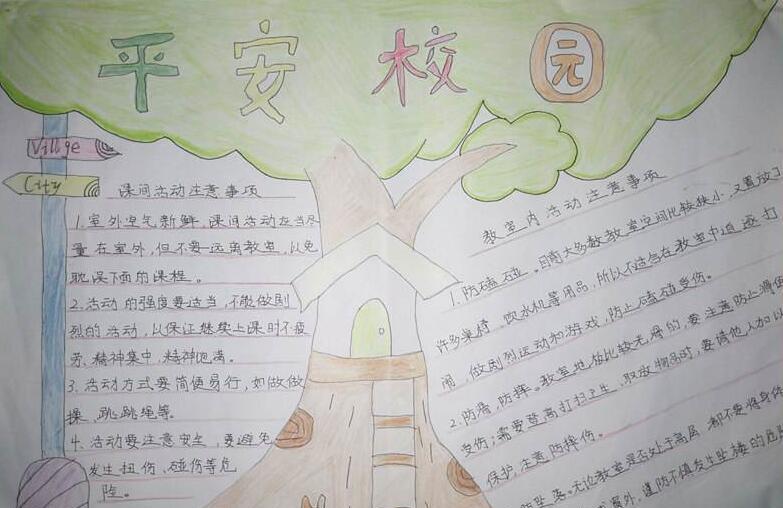 平安校园
Village
City
课间活动注意事项
1.室外空气新鲜,课间活动应当尽
量在室外,但不要远离教室,以免
耽误下面的课程。
2.活动的强度要适当,不能做剧
烈的活动,以保证继续上课时不疲
劳、精神集中、精神饱满。
3.活动方式要简便易行,如做做
操、跳跳绳等。
4.活动要注意安全,要避免
发生扭伤、碰伤等危
险。
教室内活动注意事项
1.防磕碰。目前大多数教室空间比较狭小,又置放了
许多桌椅、饮水机等用品,所以不应该在教室中追逐打
闹,做剧烈运动和游戏,防止磕碰受伤。
2.防滑,防摔。教室地板比较光滑的,要注意防止滑倒
受伤;需要登高打扫卫生、取放物品时,要请他人加以
保护,注意防摔伤。
防坠落。无论教室是否处于高层,都不要将身体
窗外,谨防不慎发生坠楼的危险